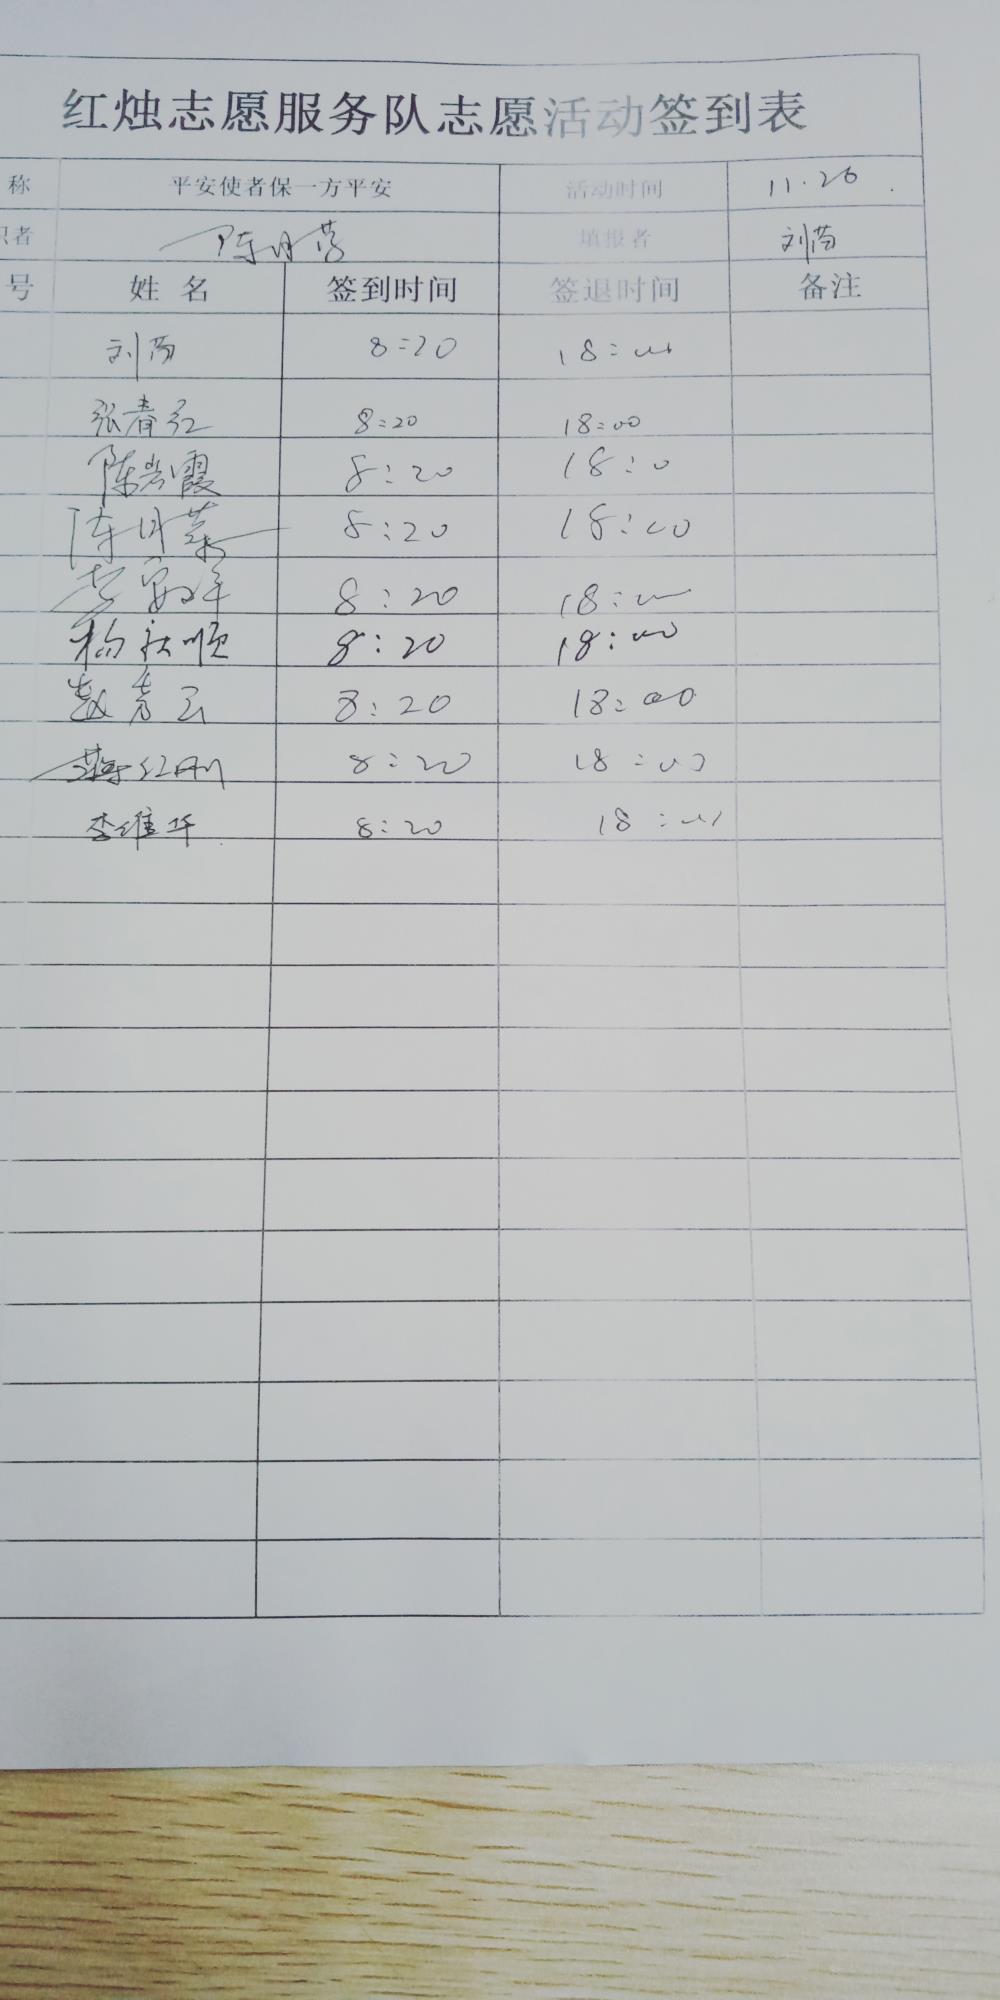 红烛志愿服务队志愿活动签到表
称 平安使者保一方平安 活动时间 11.26
织者 陈月 填报者 刘芮
号 姓名 签到时间 签退时间 备注
刘芮 8:20 18:00
张春红 8:20 18:00
陈岩霞 8:20 18:0
陈月 8:20 18:00
8:20 18:00
杨 顺 8:20 18:00
赵秀云 8:20 18:00
蒋红刚 8:20 18:00
李维华 8:20 18:00